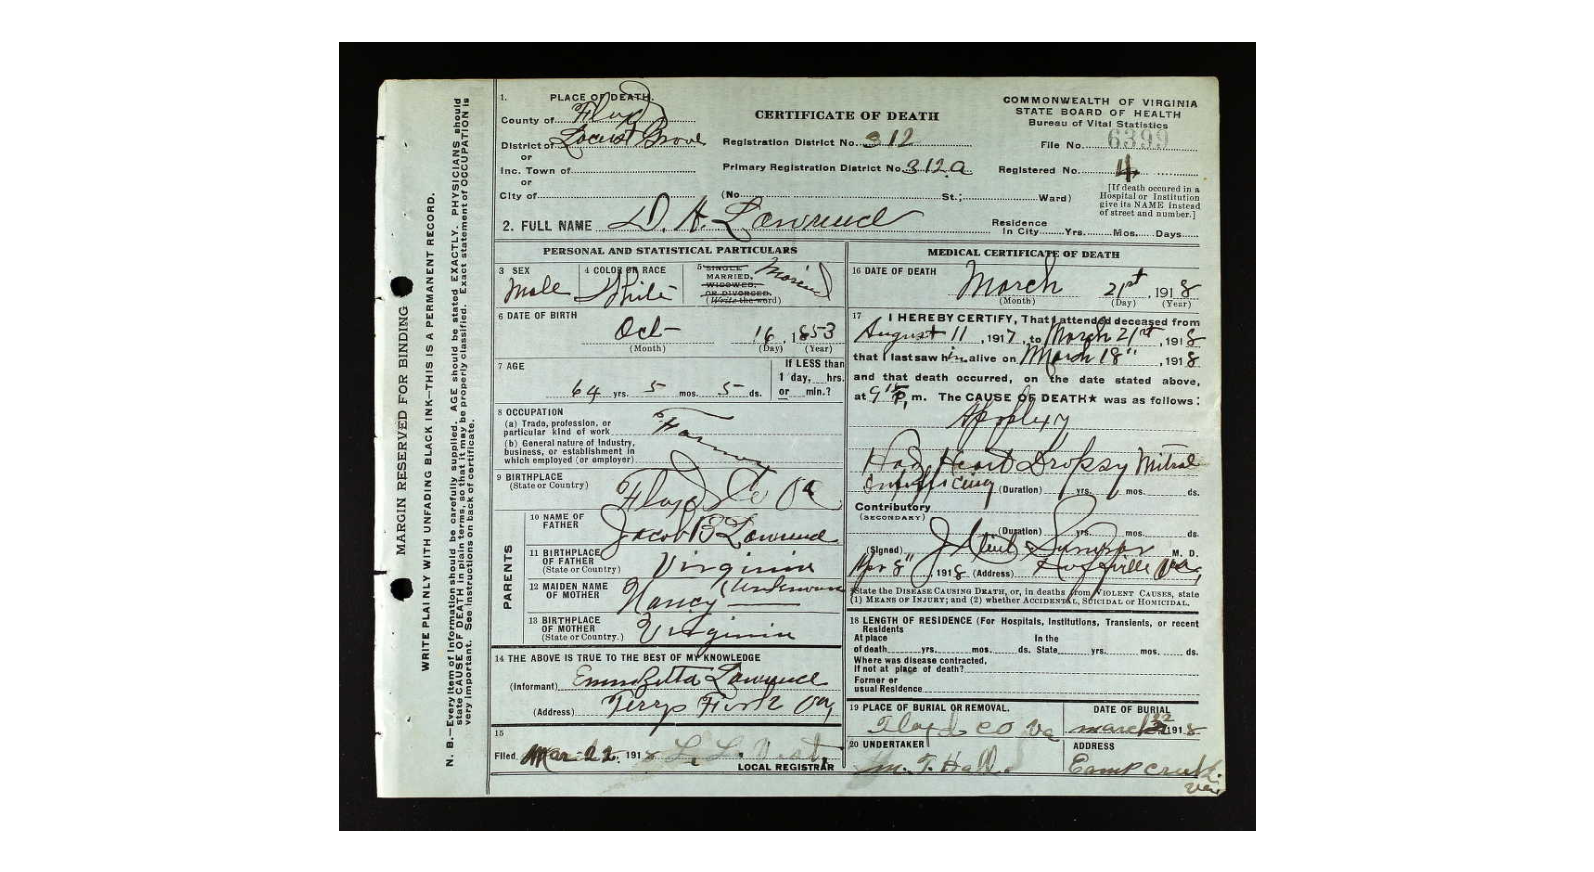 MARGIN RESERVED FOR BINDING
WRITE PLAINLY WITH UNFADING BLACK INK—THIS IS A PERMANENT RECORD.
N. B.—Every item of information should be carefully supplied. AGE should be stated EXACTLY. PHYSICIANS should
state CAUSE OF DEATH in plain terms, so that it may be properly classified. Exact statement of OCCUPATION is
very important. See instructions on back of certificate.
1. PLACE OF DEATH.
County of Floyd
District of Locust Grove
or
Inc. Town of
or
City of
CERTIFICATE OF DEATH
Registration District No. 312
Primary Registration District No. 312a
(No. St.; Ward)
COMMONWEALTH OF VIRGINIA
STATE BOARD OF HEALTH
Bureau of Vital Statistics
File No. 6399
Registered No. 4
[If death occured in a
Hospital or Institution
give its NAME instead
of street and number.]
2. FULL NAME D. H. Lawrence
Residence
In City Yrs. Mos. Days
PERSONAL AND STATISTICAL PARTICULARS
3 SEX
Male
4 COLOR OR RACE
White
5 SINGLE
MARRIED,
WIDOWED,
OR DIVORCED.
(Write the word)
Maried
6 DATE OF BIRTH
Oct 16, 1853
(Month) (Day) (Year)
7 AGE
64 yrs. 5 mos. 5 ds.
If LESS than
1 day, hrs.
or min.?
8 OCCUPATION
(a) Trade, profession, or
particular kind of work
Farmer
(b) General nature of Industry,
business, or establishment in
which employed (or employer)
9 BIRTHPLACE
(State or Country)
Floyd Co Va
PARENTS
10 NAME OF
FATHER
Jacob B Lawrence
11 BIRTHPLACE
OF FATHER
(State or Country)
Virginia
12 MAIDEN NAME
OF MOTHER
Nancy (Unknown
13 BIRTHPLACE
OF MOTHER
(State or Country.)
Virginia
14 THE ABOVE IS TRUE TO THE BEST OF MY KNOWLEDGE
(Informant) Lawrence
(Address) Terrys Fork Va,
15
Filed Mar 22, 1918 L. L. Vest,
LOCAL REGISTRAR
MEDICAL CERTIFICATE OF DEATH
16 DATE OF DEATH
March 21st, 1918
(Month) (Day) (Year)
17 I HEREBY CERTIFY, That I attended deceased from
August 11, 1917, to March 21st, 1918
that I last saw him alive on March 18", 1918
and that death occurred, on the date stated above,
at 9 15 P, m. The CAUSE OF DEATH★ was as follows:
Apoplexy
Had Heart Dropsy Mitral
(Duration) yrs. mos. ds.
Contributory
(SECONDARY)
(Duration) yrs. mos. ds.
(Signed) M. D.
Apr 8", 1918 (Address) Va,
★State the DISEASE CAUSING DEATH, or, in deaths from VIOLENT CAUSES, state
(1) MEANS OF INJURY; and (2) whether ACCIDENTAL, SUICIDAL or HOMICIDAL.
18 LENGTH OF RESIDENCE (For Hospitals, Institutions, Transients, or recent
Residents
At place In the
of death yrs. mos. ds. State yrs. mos. ds.
Where was disease contracted,
If not at place of death?
Former or
usual Residence
19 PLACE OF BURIAL OR REMOVAL.
Floyd CO Va
DATE OF BURIAL
march 22 1918
20 UNDERTAKER
M. T. Hall.
ADDRESS
Camp creek.
Va